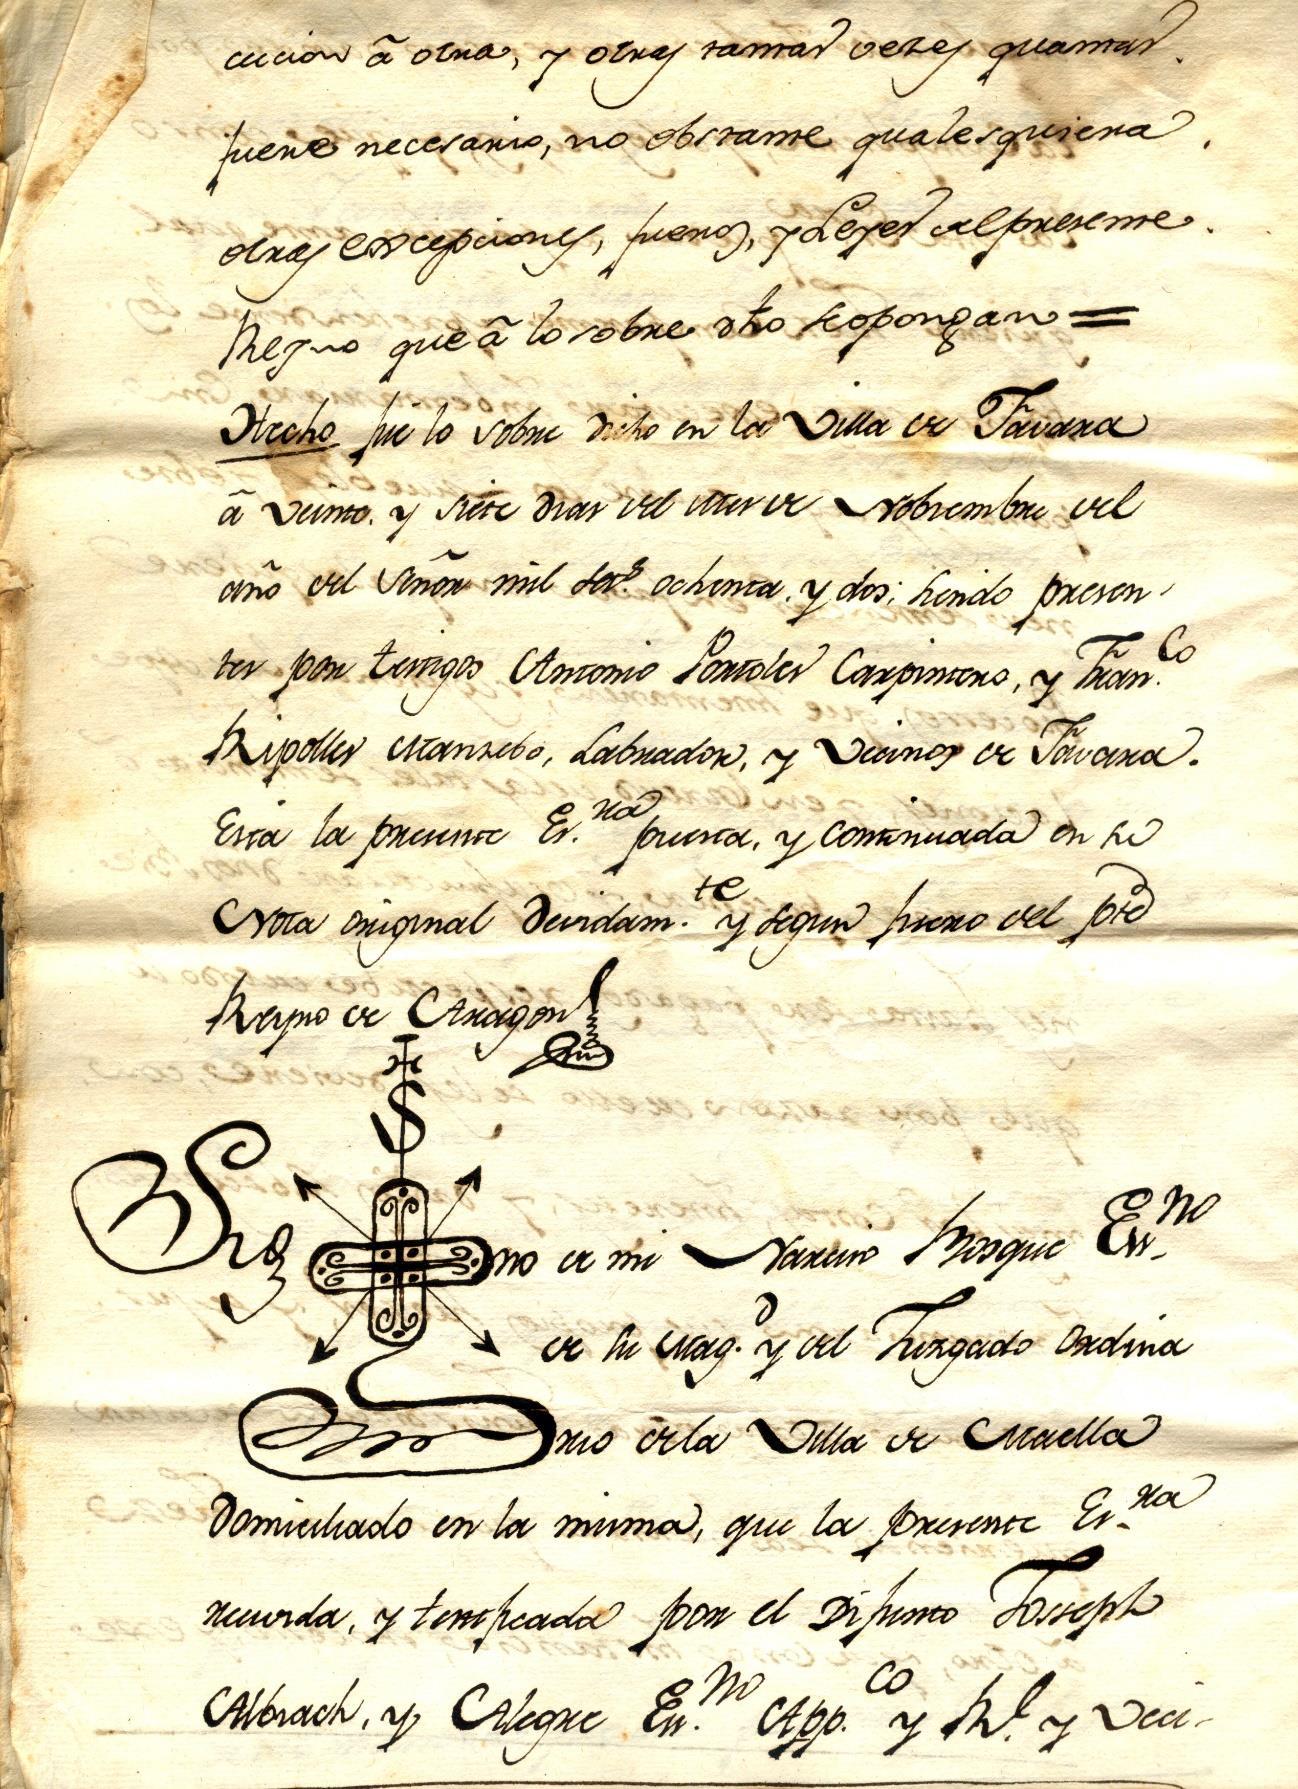 cucion â otra, y otras tantas vezes quantas
fuere necesario, no obstante qualesquiera
otras excepciones, fueros, y Leyes del presente
Reyno que â lo sobre dho se opongan =
Hecho fue lo sobre dicho en la Villa de Fâvara
â Veinte. y siete dias del mes de Nobiembre del
año del Señor mil sets. ochenta. y dos; siendo presen-
tes por testigos Antonio Portoles Carpintero, y Fran.co
Ripolles Manzebo, Labrador, y Vecinos de Fâvara.
Esta la presente Es.ra puesta, y continuada en su
Nota original devidam.te y segun fuero del pte
Reyno de Aragon
S
Sig no de mi Narciso Bosque Ess.no
de su Mag.d y del Juzgado Ordina
rio dela Villa de Maella
Domiciliado en la misma, que la presente Es.ra
recivida, y testificada por el Difunto Joseph
Albiach, y Alegre Ess.no App.co y Rl. y Veci-